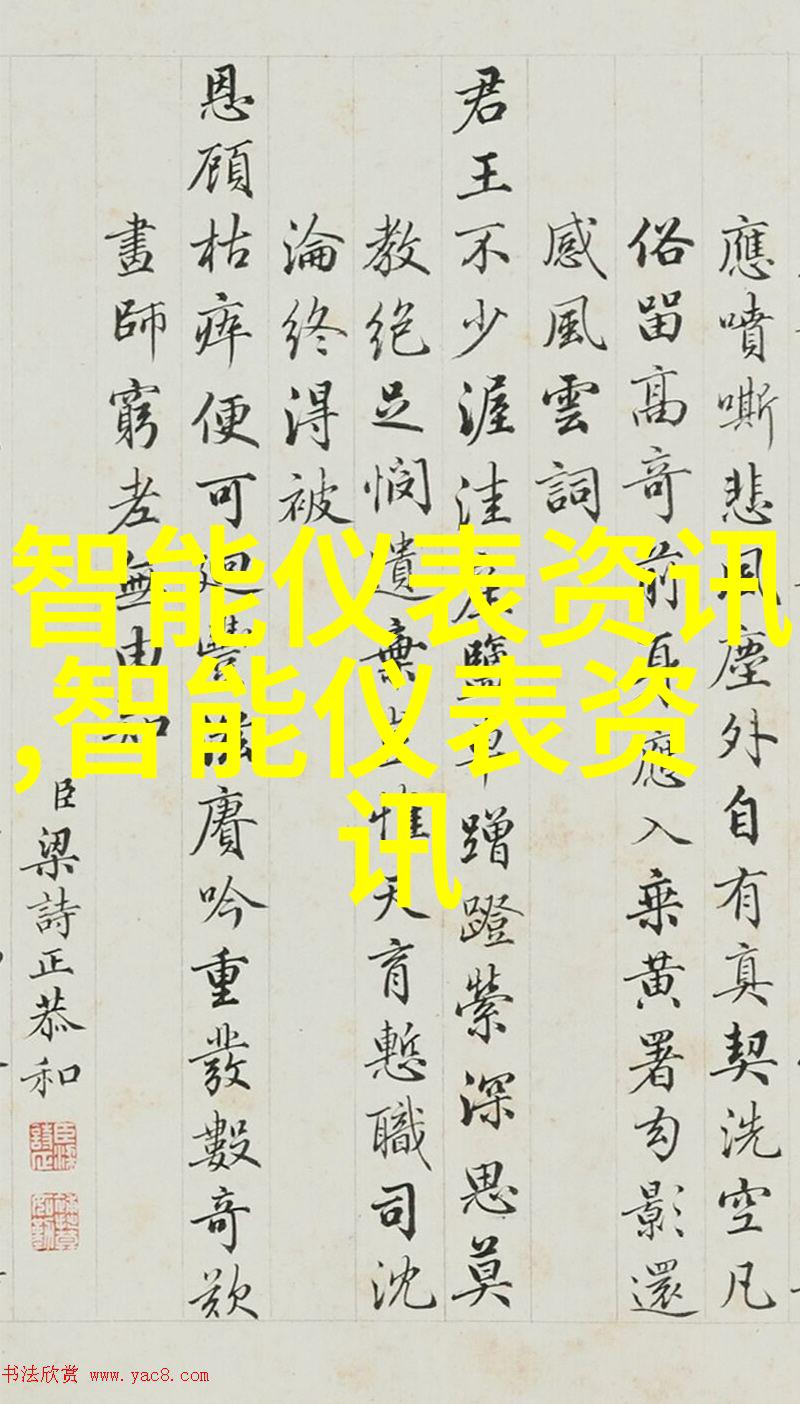 應噴嘶悲風塵外自有真契洗空凡
俗留高奇前身應入乘黃署勾影還
感風雲詞
君王不少渥洼產鹽車蹭蹬縈深思莫
教絕足憫遺棄惟天育慙職司沈
淪終得被
恩顧枯瘁便可迴賡吟重發數奇歎
畫師窮老無由知
臣梁詩正恭和
智能仪表资讯
,智能仪表资
讯
书法欣赏 www.yac8.com